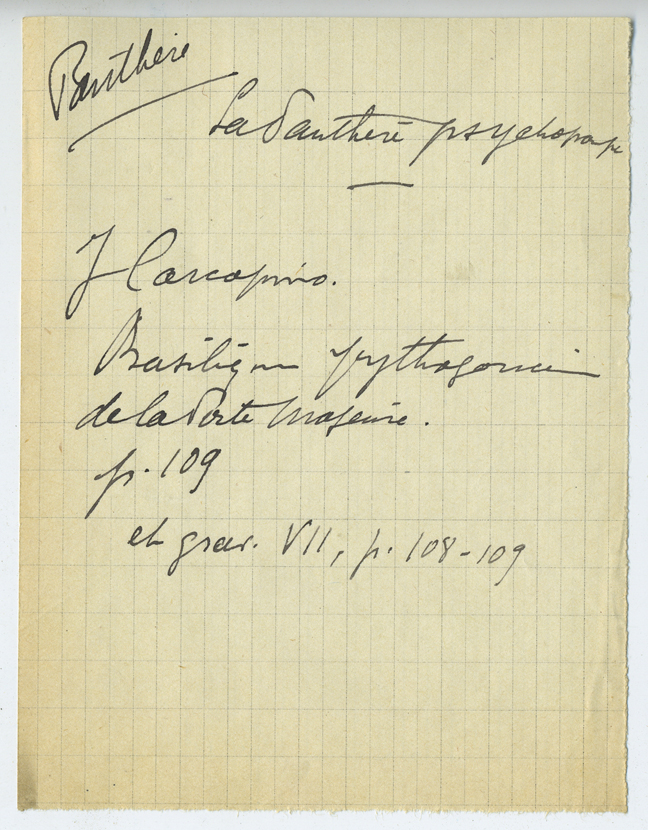 Panthère
La Panthère psychopompe
J Carcopino.
Basilique pythagoricienne
de la Porte Majeure.
p. 109
et grav. VII, p. 108-109